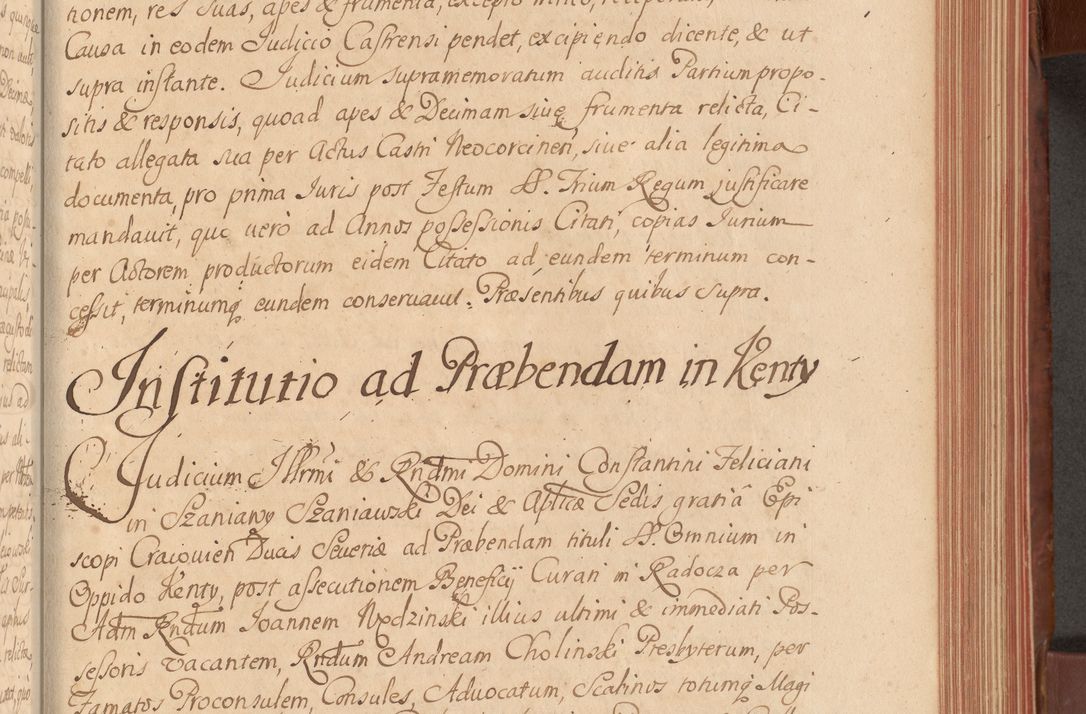 tionem, res suas, apes & frumenta, excepto
Causa in eodem Judicio Castrensi pendet, excipiendo dicente, & ut
supra instante. Judicium supramemoratum auditis Partium propo-
sitis & responsis, quoad apes & Decimam sive frumenta relicta, Ci-
tato allegata sua per Actus Castri Neocorcinen, sive alia legitima
documenta, pro prima Juris post Festum SS. Trium Regum justificare
mandavit, quo verò ad Annos possessionis Citati, copias Jurium
per Actorem productorum eidem Citato ad eundem terminum con-
cessit, terminumq eundem conservavit. Præsentibus quibus supra.
Institutio ad Præbendam in Kenty
Judicium Illrmi & Rndmi Domini Constantini Feliciani
in Szaniawy Szaniawski Dei & Aplicæ Sedis gratiâ Epi
scopi Cracovien Ducis Severiæ ad Præbendam tituli SS. Omnium in
Oppido Kenty, post assecutionem Beneficij Curati in Radocza per
Adm Rndum Joannem Nodzinski illius ultimi & immediati Pos-
sessoris vacantem, Rndum Andream Cholinski Presbyterum, per
Famatos Proconsulem, Consules, Advocatum, Scabinos totumq Magi